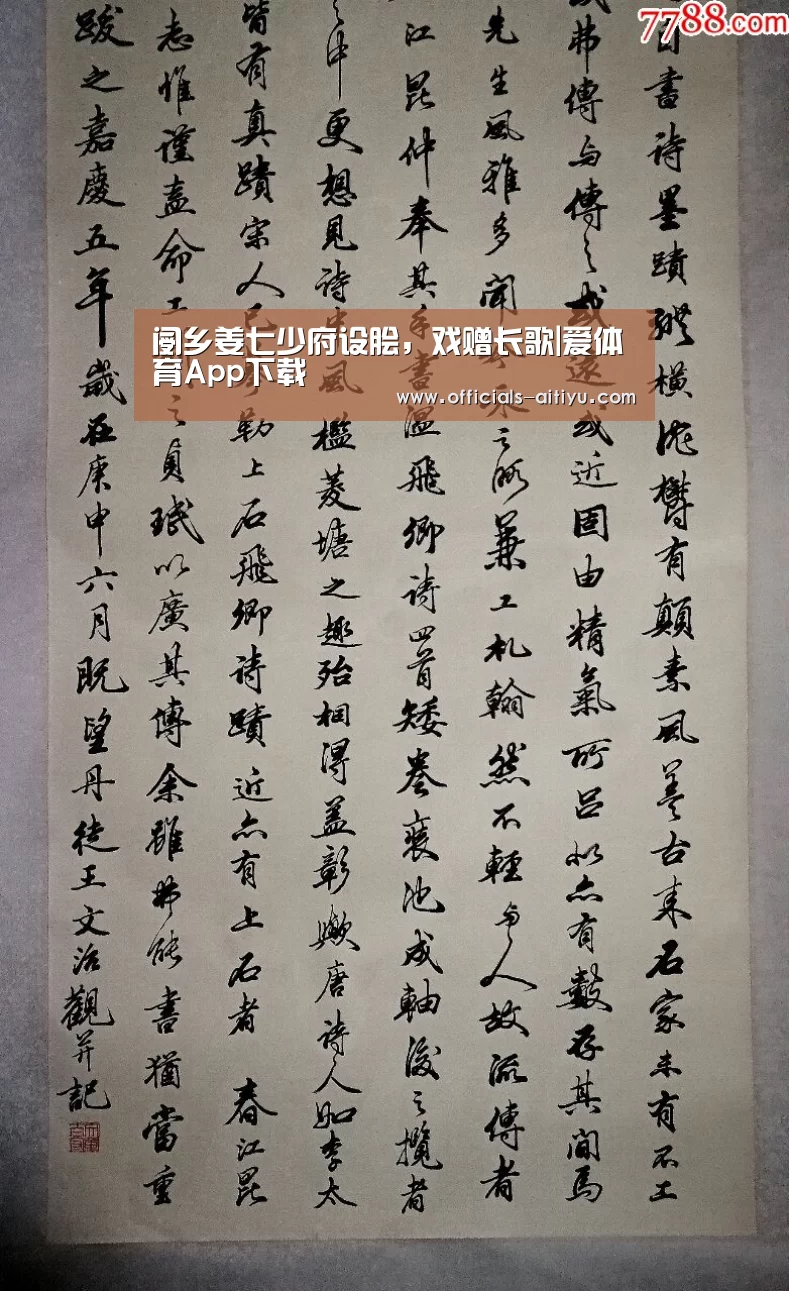 7788.com
自書诗墨蹟縱橫沈欝有顛素風善古來石家未有不工
弗傳与傳之或遠或近固由精氣所
亦有數存其間焉
先生風雅多聞
之所兼工札翰然不輕與人故流傳者
江昆仲奉其手書温飛卿詩四首矮卷裒池成軸後之攬者
之中更想見詩中風檻菱塘之趣殆相得益彰嗷唐詩人如李太
皆有真蹟宋人已
勒上石飛卿詩蹟近亦有上石者 春江昆
志惟謹盍命工
之貞珉以廣其傳余雖弗能書猶當重
跋之嘉慶五年歲在庚申六月既望丹徒王文治觀并記
阌乡姜七少府设脍，戏赠长歌|爱体
育App下载
www.officials-aitiyu.com